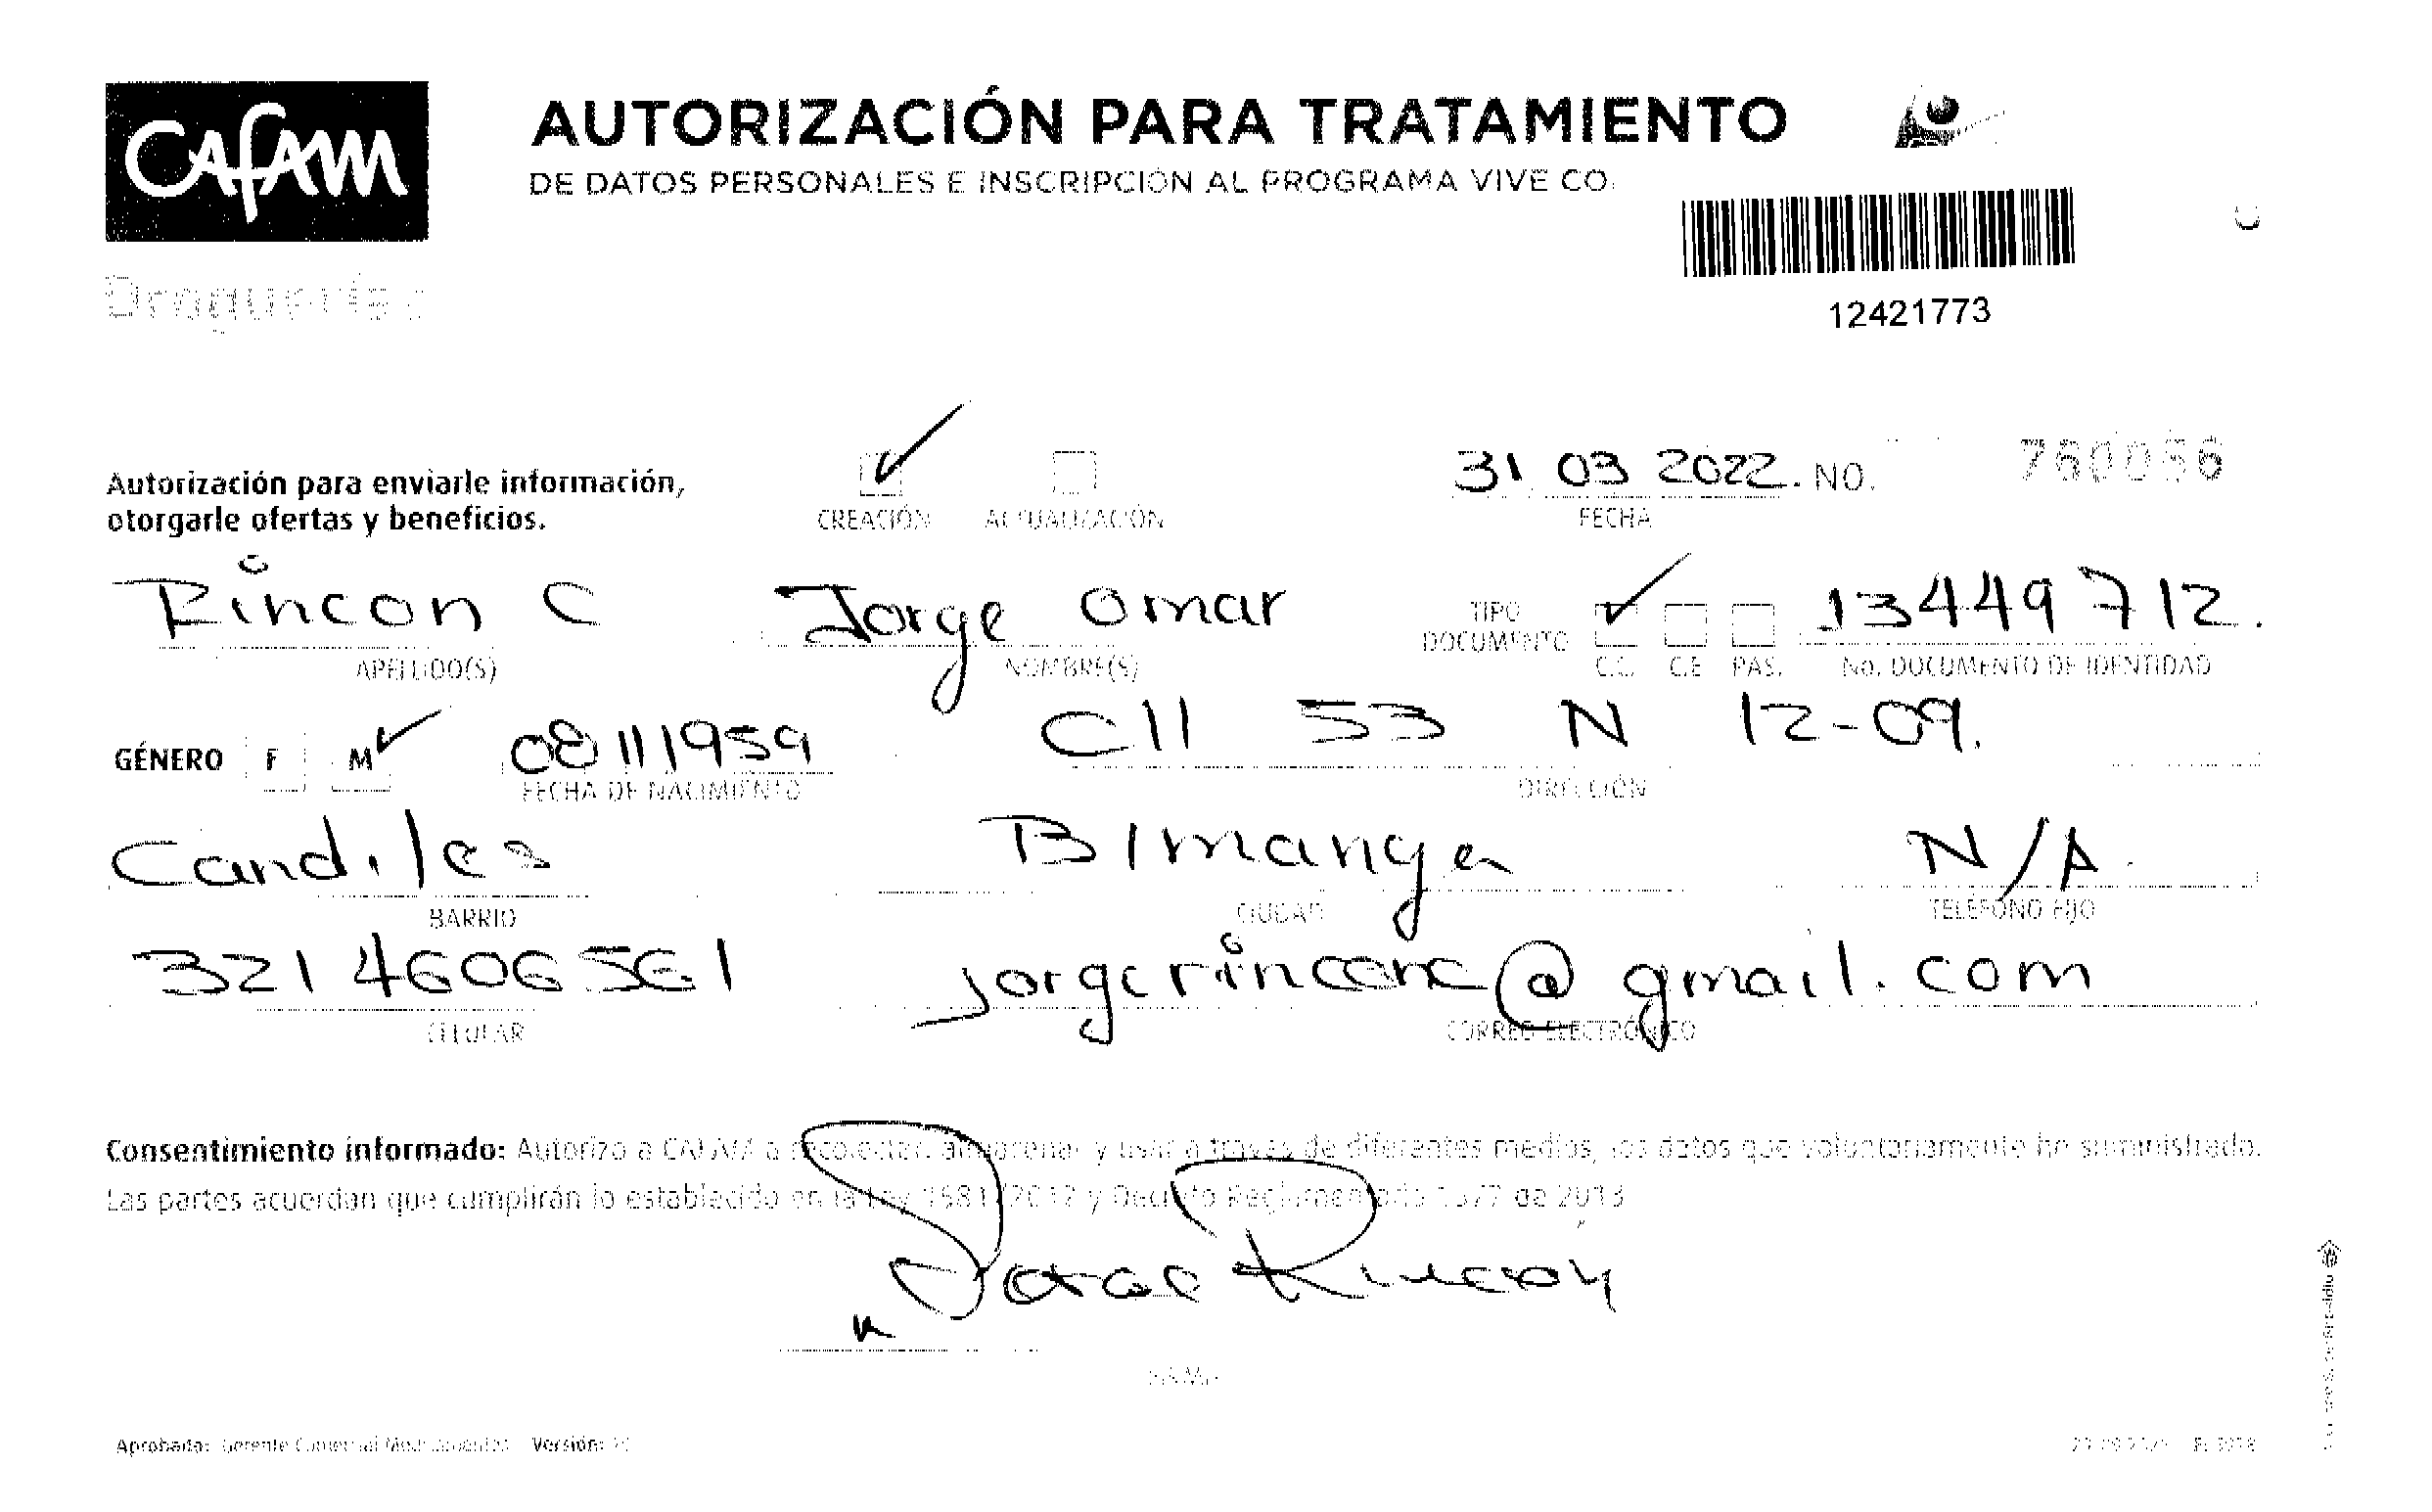 CAFAM
Droguerías
AUTORIZACIÓN PARA TRATAMIENTO
DE DATOS PERSONALES E INSCRIPCIÓN AL PROGRAMA VIVE CO
12421773
Autorización para enviarle información,
otorgarle ofertas y beneficios.
CREACIÓN ACTUALIZACIÓN
31 03 2022. NO. 760056
FECHA
Rincon C Jorge Omar TIPO DOCUMENTO C.C. C.E PAS. 13449712.
APELLIDO(S) NOMBRE(S) No. DOCUMENTO DE IDENTIDAD
GÉNERO F M 08111959 Cll 53 N 12-09.
FECHA DE NACIMIENTO DIRECCIÓN
Candiles B/manga N/A
BARRIO CIUDAD TELÉFONO FIJO
3214606561 jorgerinconc@gmail.com
CELULAR CORREO ELECTRÓNICO
Consentimiento informado: Autorizo a CAFAM a recolectar, almacenar y usar a través de diferentes medios, los datos que voluntariamente he suministrado.
Las partes acuerdan que cumplirán lo establecido en la Ley 1581/2012 y Decreto Reglamentario 1377 de 2013
Jorge Rincon
FIRMA
Aprobado: Gerente Comercial Medicamentos Versión: